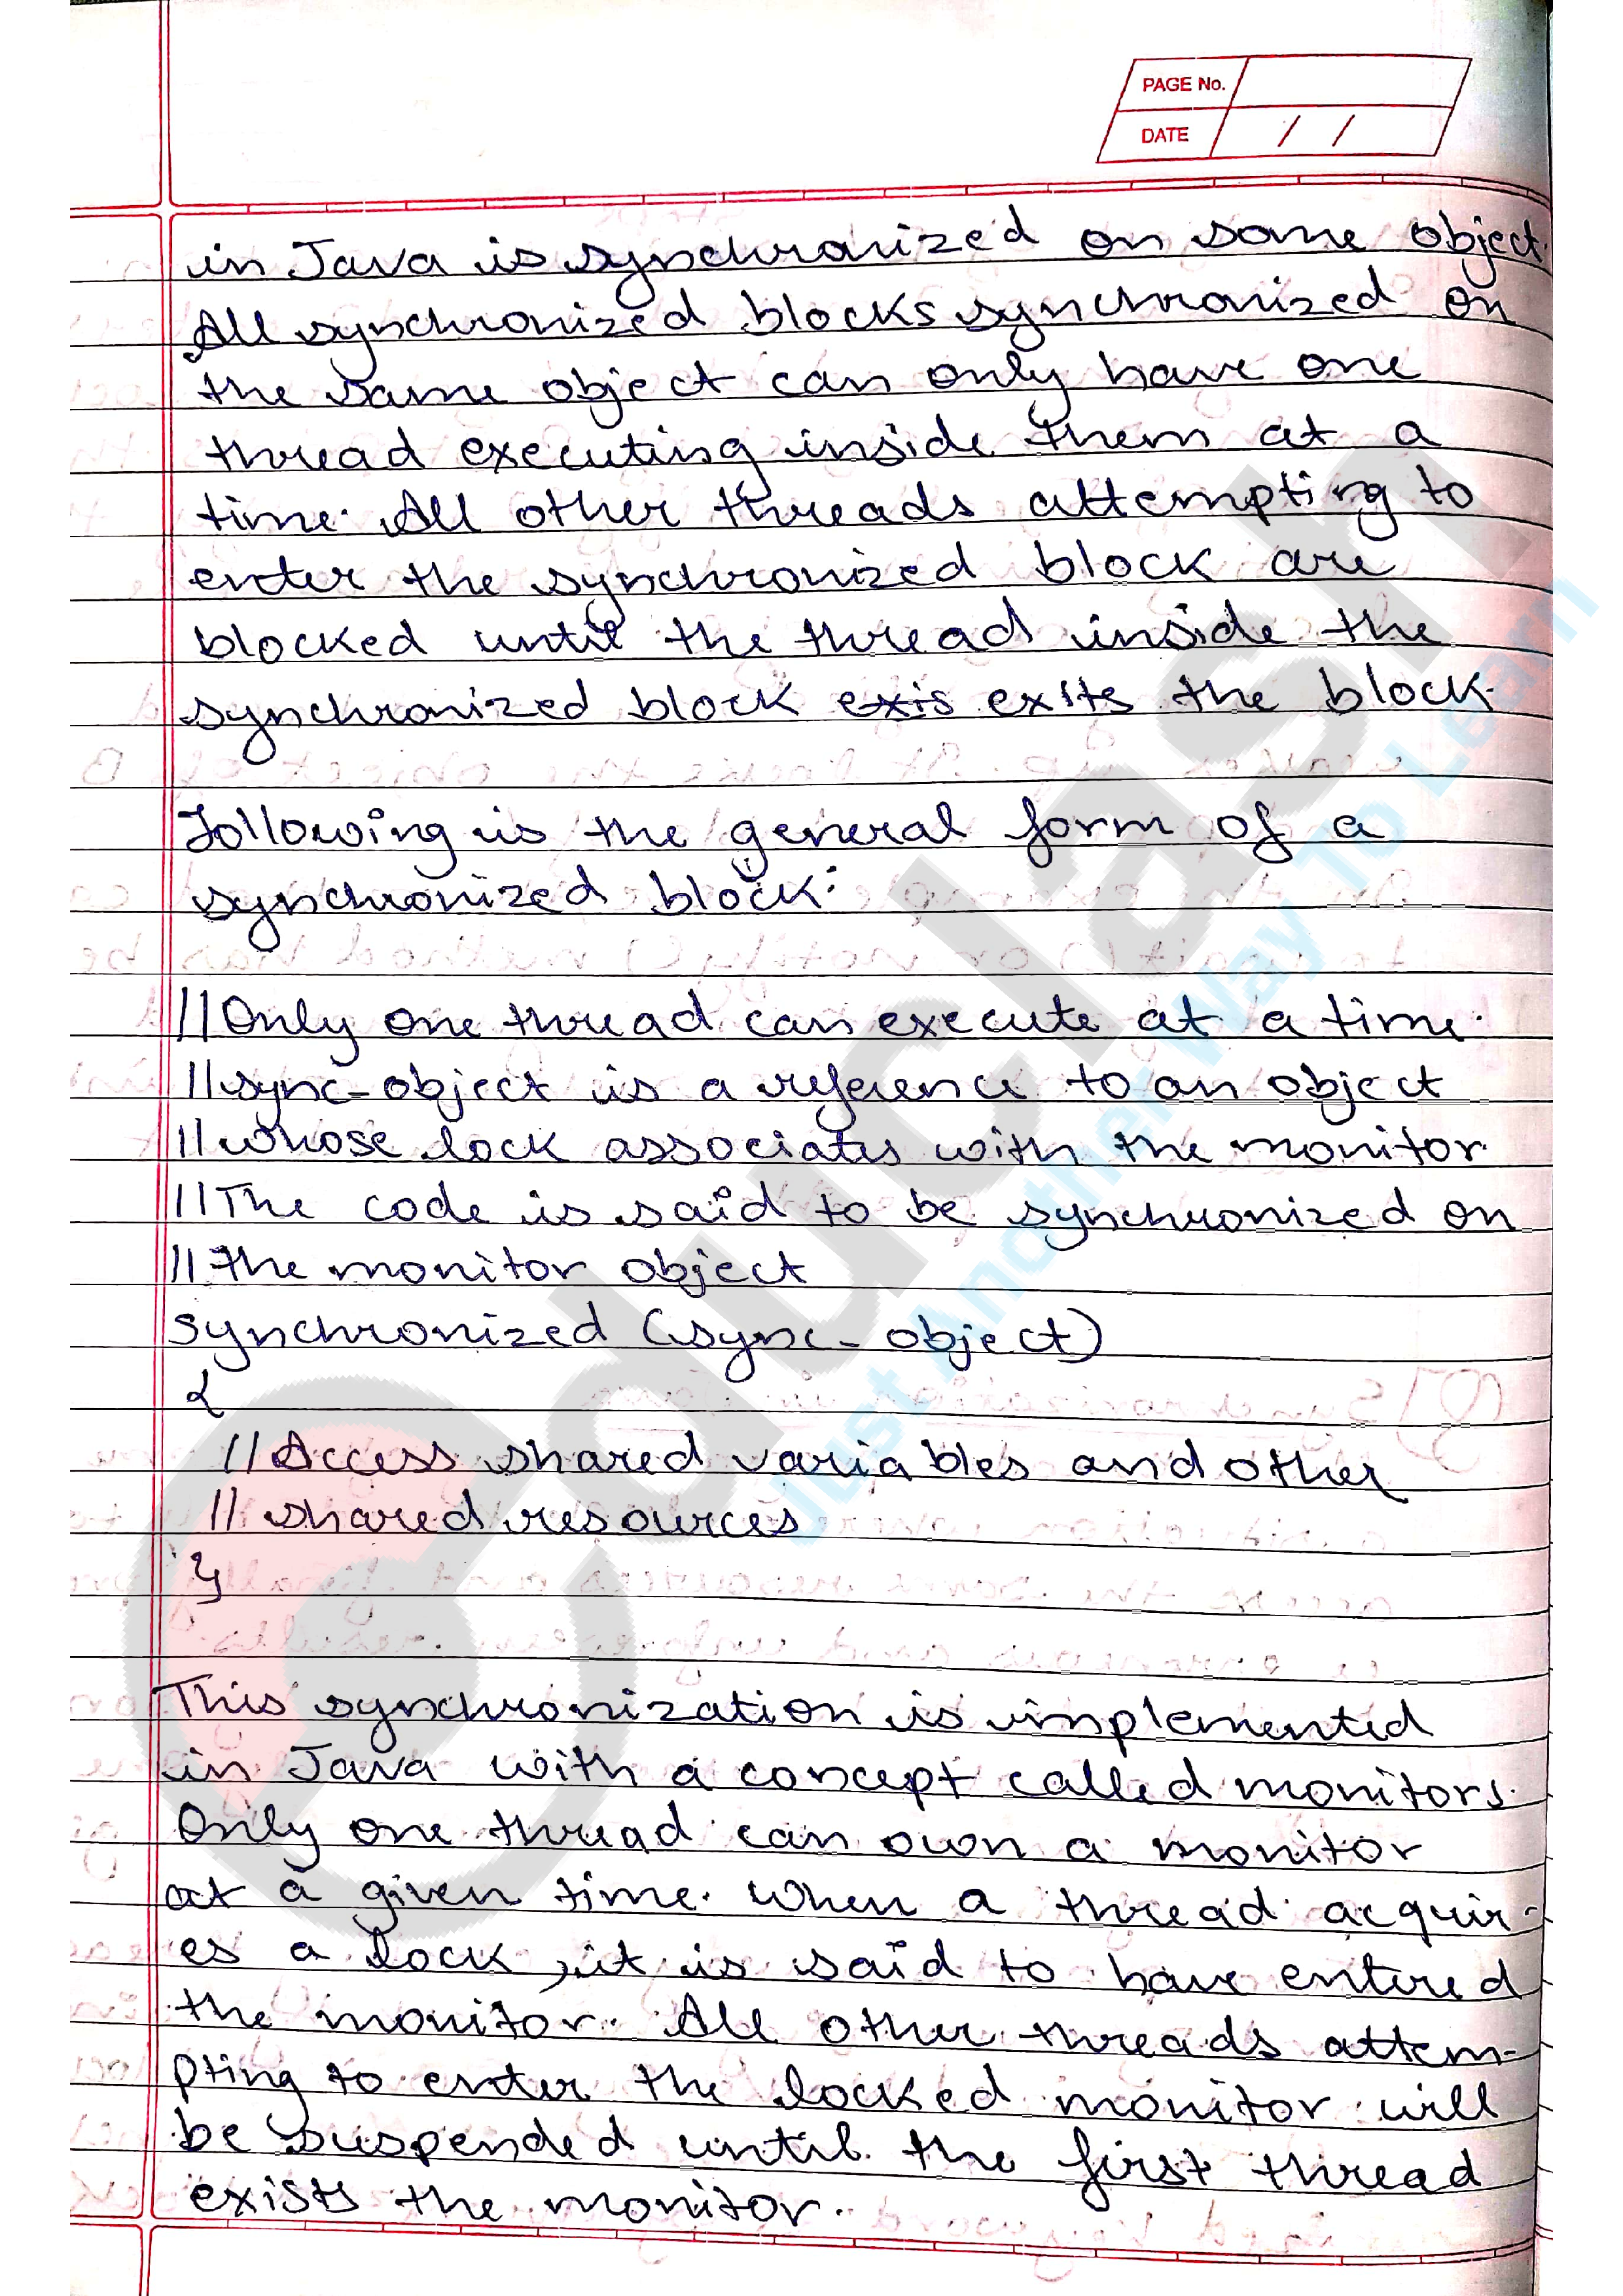 PAGE No.
DATE / /
in Java is synchronized on some object.
All synchronized blocks synchronized on
the same object can only have one
thread executing inside them at a
time. All other threads attempting to
enter the synchronized block are
blocked until the thread inside the
synchronized block exis exits the block.
Following is the general form of a
synchronized block:
//Only one thread can execute at a time.
//sync-object is a reference to an object
//whose lock associates with the monitor.
//The code is said to be synchronized on
//the monitor object
synchronized (sync-object)
{
//Access shared variables and other
//shared resources
}
This synchronization is implemented
in Java with a concept called monitors.
Only one thread can own a monitor
at a given time. When a thread acquir-
es a lock, it is said to have entered
the monitor. All other threads attem-
pting to enter the locked monitor will
be suspended until the first thread
exists the monitor.
educlash
Just Another Way To Learn